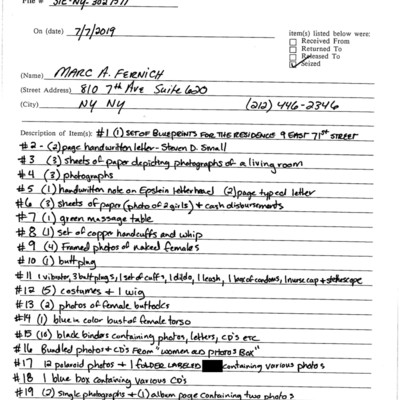 File # 31E-NY-3027571
On (date) 7/7/2019
item(s) listed below were:
Received From
Returned To
Released To
Seized
(Name) MARC A. FERNICH
(Street Address) 810 7th AVE SUITE 620
(City) NY NY (212) 446-2346
Description of Item(s): #1 (1) SET OF BLUEPRINTS FOR THE RESIDENCE 9 EAST 71st STREET
#2 - (2) page handwritten letter - Steven D. Small
#3 (3) sheets of paper depicting photographs of a living room
#4 (3) photographs
#5 (1) handwritten note on Epstein letterhead (2) page typed letter
#6 (3) sheets of paper (photo of 2 girls) + cash disbursements
#7 (1) green massage table
#8 (1) set of copper handcuffs and whip
#9 (4) Framed photos of naked females
#10 (1) buttplug
#11 1 vibrator, 3 buttplugs, 1 set of cuffs, 1 dildo, 1 leash, 1 box of condoms, 1 nurse cap + stethoscope
#12 (5) costumes + 1 wig
#13 (2) photos of female buttocks
#14 (1) blue in color bust of female torso
#15 (10) black binders containing photos, letters, CD's etc
#16 Bundled photos + CD's from "women old photos Box"
#17 12 polaroid photos + 1 FOLDER LABELED containing various photos
#18 1 blue box containing various CD's
#19 (2) single photographs + (1) album page containing two photos